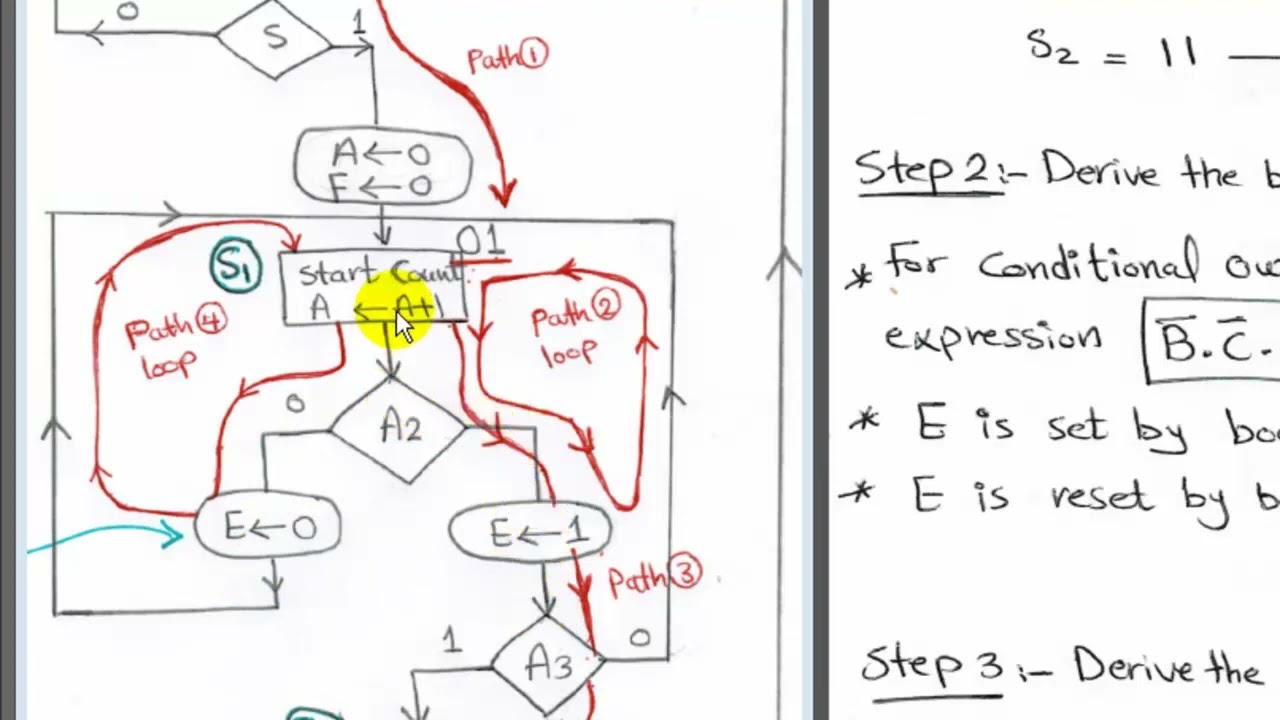 0
S
1
Path ①
A ← 0
F ← 0
S1
01
Start Count.
A ← A+1
Path ④
loop
Path ②
loop
0
A2
E ← 0
E ← 1
Path ③
1
A3
0
S2 = 11 —
Step 2:- Derive the b
* for Conditional ou
expression B̅.C̅.
* E is set by boo
* E is reset by b
Step 3:- Derive the